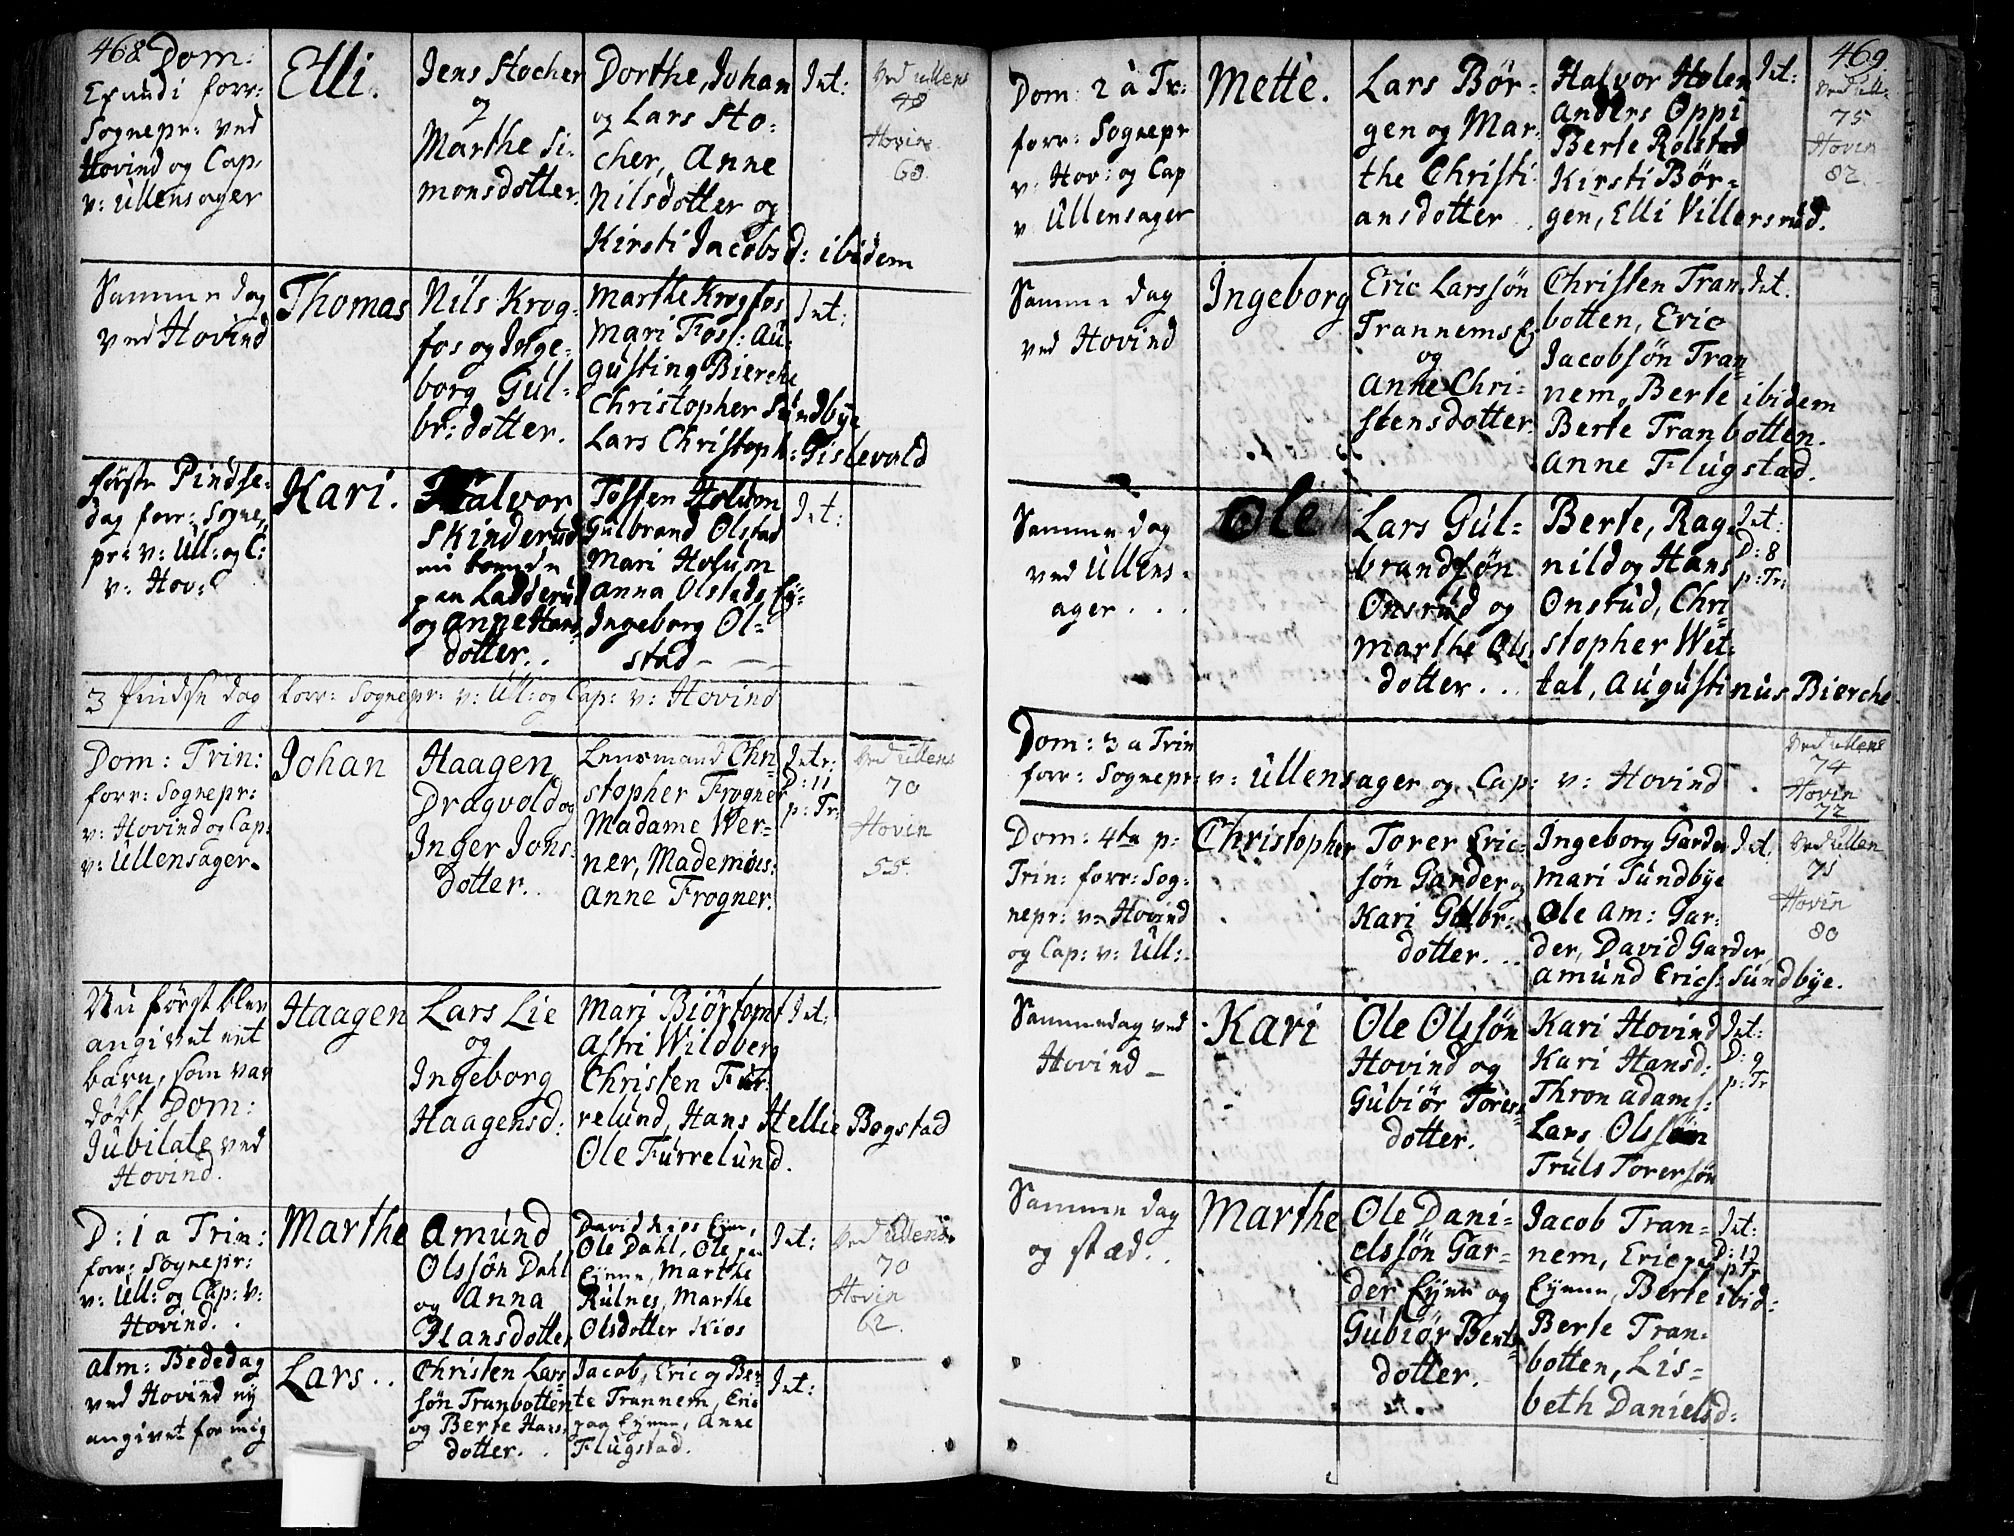 468 Dom:
Exaudi forr:
Sognepr: ved
Hovind og Cap.
v: Ullensager
Elli.
Jens Stocher
og
Marthe Si-
monsdotter.
Dorthe, Johan
og Lars Sto-
cher, Anne
Nilsdotter og
Kirsti Jacobsd: ibidem
Jnt:
Ved Ullens
48
Hovin
60.
Samme dag
ved Hovind
Thomas
Nils Krog-
fos og Inge-
borg Gul-
br: dotter.
Marthe Krogfos
Mari Foss: Au-
gusting Bierche
Christopher Sundbye
Lars Christoph: Gislevold
Jnt:
første Pindse-
dag forr: Sogne
pr: v: Ull: og C:
v: Hov:
Kari.
Halvor
Skinderud
nu boende
paa Ladderud
og Anne Hans
dotter..
Tosten Holum
Gulbrand Olstad
Mari Holum
Anna Olstads Ey-
Ingeborg Ol-
stad -
Jnt:
3 Pindse dag forr: Sognepr: v: Ull: og Cap: v: Hovind
Dom: Trin:
forr: Sognepr:
v: Hovind og Cap:
v: Ullensager.
Johan
Haagen
Dragvold og
Inger Jons-
dotter..
Lensmand Chri-
stopher Frogner
Madame Wer-
ner, Mademois:
Anne Frogner.
Jntr:
D: 11
p: Tr:
Ved Ullens
70
Hovin
55.
Nu først blev
angivet eet
barn, som var
døbt Dom:
Jubilate ved
Hovind.
Haagen
Lars Lie
og
Ingeborg
Haagensd:
Mari Biørtomt
Astri Wildberg
Christen Fur-
relund, Hans Hellie Bogstad
Ole Furrelund.
Jnt:
D: 1 a Trin:
forr: Sognepr:
v: Ull: og Cap: v:
Hovind..
Marthe
Amund
Olssøn Dahl
og Anna
Hansdotter
David Kios Eyn,
Ole Dahl, Ole paa
Eynnn, Marthe
Rulnes, Marthe
Olsdotter Kios
Jnt:
Ved Ullens.
70
Hovin
62.
Alm: Bededag
ved Hovind ny
angivet for mig
Lars..
Christen Lars-
søn Tranbotten
og Berte Hans-
dotter..
Jacob, Eric og Ber-
te Trannem, Eric
paa Eynnn, Anne
Flugstad.
Jnt:
469
Dom: 2 à Tr:
forr: Sognepr
v: Hov: og Cap
v Ullensager
Mette.
Lars Bør-
gen og Mar-
the Christi-
ansdotter.
Halvor Holen
Anders Oppi
Berte Rolstad
Kirsti Bør-
gen, Elli Villersrud.
Jnt:
Ved Ull:
75
Hovin
82.
Samme dag
ved Hovind
Ingeborg
Eric Larssøn
Trannems Ey
og
Anne Chri-
stensdotter.
Christen Tran-
botten, Eric
Jacobsøn Tran-
nem, Berte ibidem
Berte Tranbotten.
Anne Flugstad.
Jnt.
Samme dag
ved Ullens-
ager...
Ole
Lars Gul-
brandsøn
Onsrud og
Marthe Ols
dotter...
Berte, Rag-
nild og Hans
Onsrud, Chri-
stopher Wet-
tal, Augustinus Bierche.
Jnt:
D: 8
p: Tr:
Dom: 3 a Trin
forr: Sognepr: v: Ullensager og Cap: v: Hovind.
Ved Ullens
74
Hovin
72
Dom: 4ta p:
Trin: forr: Sog-
nepr: v: Hovind
og Cap: v: Ull:
Christopher
Torer Eric-
søn Garder og
Kari Gulbr:
dotter...
Ingeborg Garder
Mari Sundbye
Ole Am: Gar-
der, David Garder,
Amund Erics: Sundbye.
Jnt:
Ved Ullen
75
Hovin
80
Sammedag ved
Hovind -
Kari
Ole Olssøn
Hovind og
Gubiør Tores-
dotter.
Kari Hovind
Kari Hansd:
Thron Adams:
Lars Olssøn
Truls Torersøn
Jnt:
D: 9
p: Tr
Samme dag
og stæd..
Marthe
Ole Dani-
elssøn Gar-
der Eynn og
Gubiør Bents
dotter.
Jacob Tran-
nem, Eric paa
Eynnn, Berte ibid:
Berte Tran-
botten, Lis-
beth Danielsd:
Jnt:
D: 12
p Tr